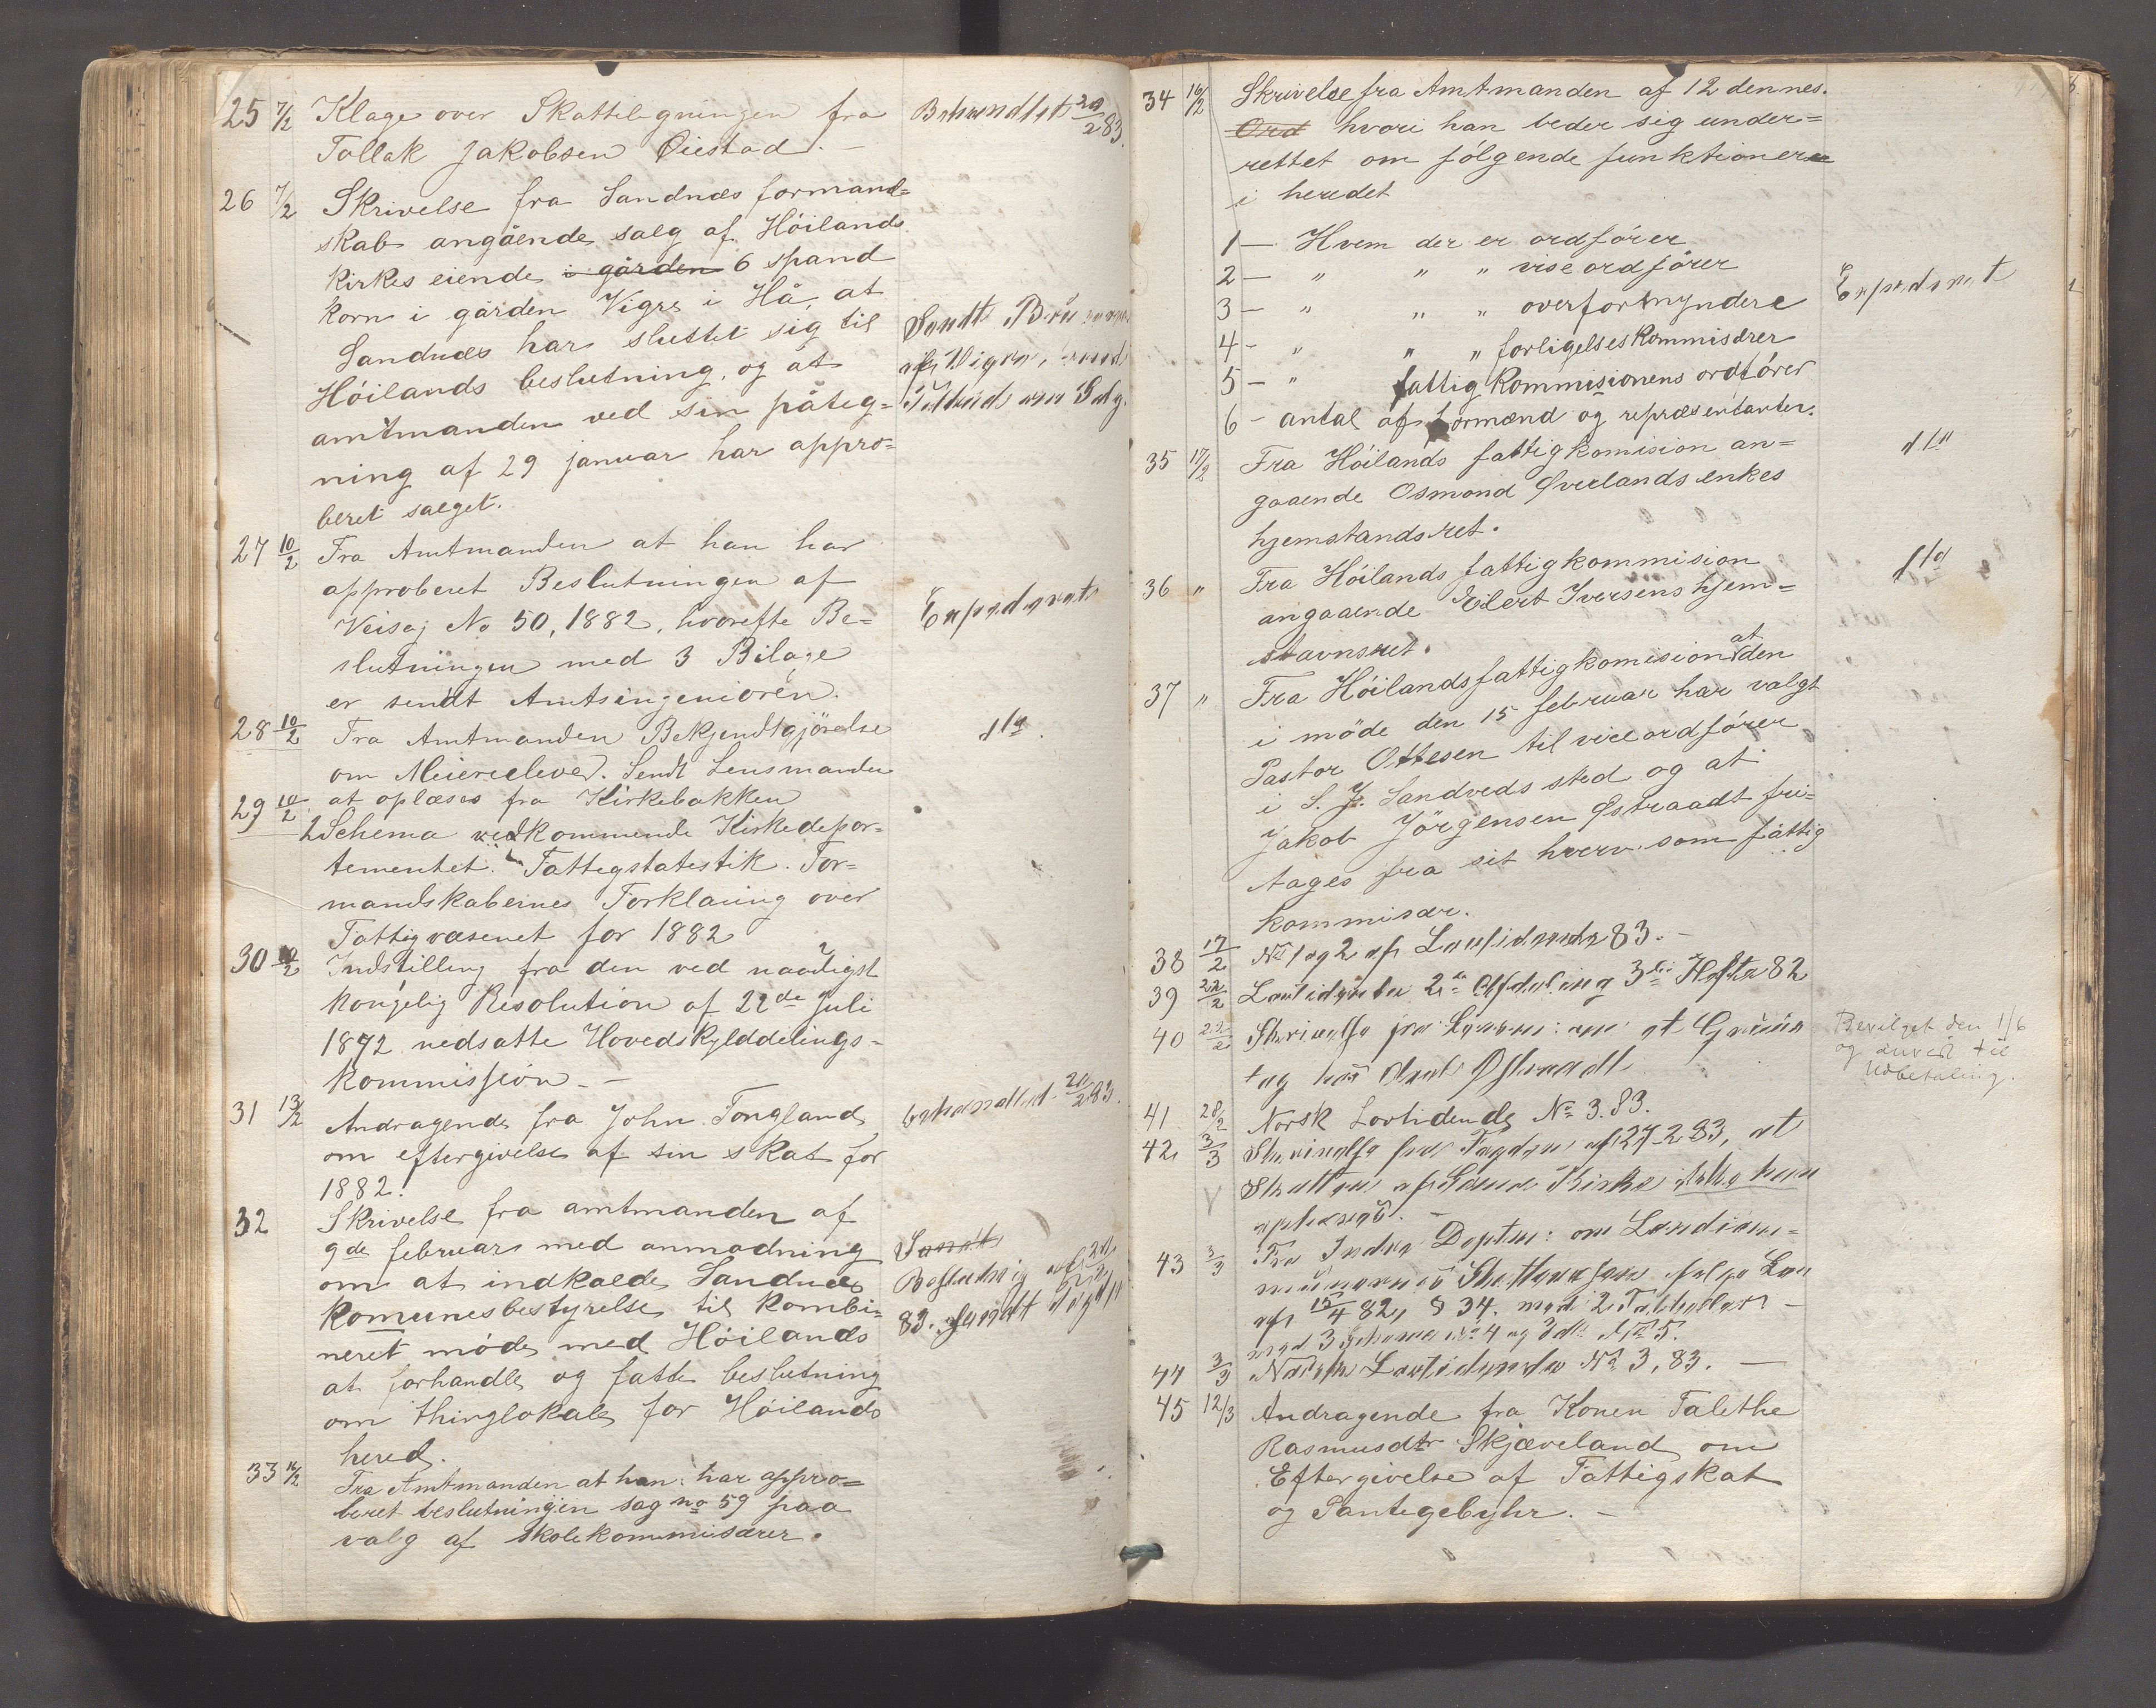 25 7/2 Klage over Skattilegningen fra Behandlet 20/2 83.
Tollak Jakobsen Øiestad. —
26 7/2 Skrivelse fra Sandnæs formand=
skab angående salg af Höilands
kirkes eiende i gården 6 spand
korn i gården Vigre i Hå, at
Sandnæs har sluttet sig til Sendt
Höilands beslutning, og at af Vigre,
amtmanden ved sin påteg=
ning af 29 januar har appro=
beret salget.
27 10/2 Fra Amtmanden at han har
approberet Beslutningen af
Veisag No 50, 1882, hvorefte Be= Expederet
slutningen med 3 Bilage
er sendt Amtsingeniören.
28 10/2 Fra Amtmanden Bekjendtgjörelse dto.
om Meierielever. Sendt Lensmanden
at oplæses fra Kirkebakken
29 10/2 2 Schema vedkommende Kirkedepar=
tementet. Fattigstatestik. For=
mandskabernes Forklaring over
Fattigvæsenet for 1882
30 10/2 Indstilling fra den ved naadigst
kongelig Resolution af 22de Juli
1872 nedsatte Hovedskylddelings=
kommission. —
31 13/2 Andragende fra John Tongland behandlet 20/2 83.
om eftergivelse af sin skat for
1882.
32 Skrivelse fra amtmanden af
9de februar med anmodning Sendt
om at indkalde Sandnæs Beslutning af 20/2
komunesbestyrelse til kombi= 83. sendt
neret möde med Höilands
at forhandle og fatte beslutning
om thinglokale for Höilands
hered.
33 16/2 Fra Amtmanden at han har appro=
beret beslutningen sag no 59 paa
valg af skolekommisærer.
34 16/2 Skrivelse fra Amtmanden af 12 dennes.
Ord hvori han beder sig under=
rettet om fölgende funktionere
i heredet
1 — Hvem der er ordförer
2 — " " " viseordförer
3 — " " " overformyndere Expederet
4 - " " " forligelseskommisærer
5 — " fattigkommisionens ordförer
6 - antal af formænd og repræsentanter.
35 17/2 Fra Höilands fattigkomision an= dto
gaaende Osmond Øverlands enkes
hjemstandsret.
36 " Fra Höilands fattigkommision dto
angaaende Eilert Iversens hjem=
stavnsret.
37 " Fra Höilands fattigkomision at den
i möde den 15 februar har valgt
Pastor Ottesen til viceordförer
i S. J. Sandveds sted og at
Jakob Jörgensen Østraadt fri=
tages fra sit hverv som fattig
kommisær.
38 17/2 No 1 og 2 af Lovtidende 83. —
39 22/2 Lovtidende 2den Afdeling 3die Hefte 82
40 22/2 Skrivelse fra Bevilget den 1/6
og anvist til
Østraadt Udbetaling.
41 28/2 Norsk Lovtidende No 3. 83.
42 3/3 Skrivelse fra Fogden af 27-2 83, at
Skatten af Kirke
43 3/3 Fra Indre Deptm: om
af 15/4 82, § 34. med 2 Tabeller —
med 3 Schema No 4 og 3 do No 5.
44 3/3 Norsk Lovtidende No 3, 83. —
45 12/3 Andragende fra Konen Talethe
Rasmusdtr Skjæveland om
Eftergivelse af Fattigskat
og Pantegebyhr. —